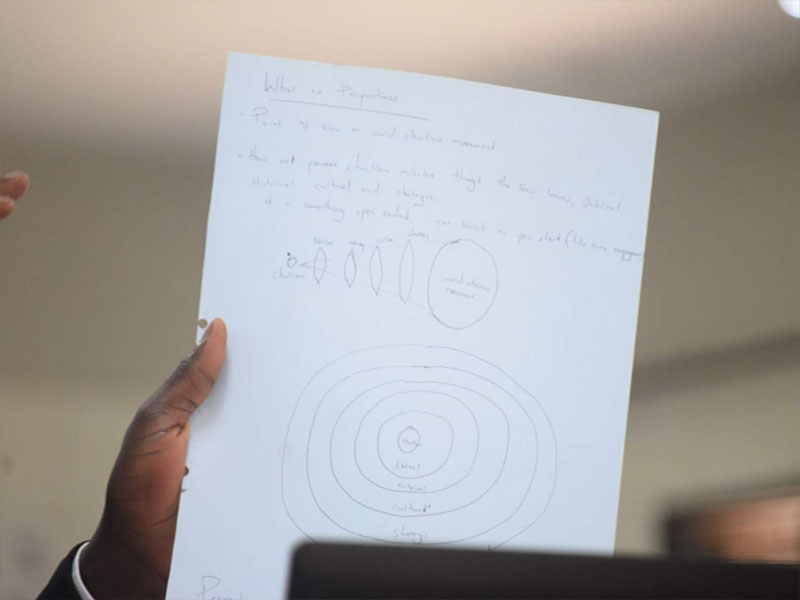 What is Perspectives.
- Point of view or world christian movement.
- How we process christian mission through the four lenses, Biblical
Historical, cultural and strategic
It is something open ended you finish as you start (life time
Biblical
cultural
strategic
christian
world christian
movement
christian
Biblical
cultural
strategic